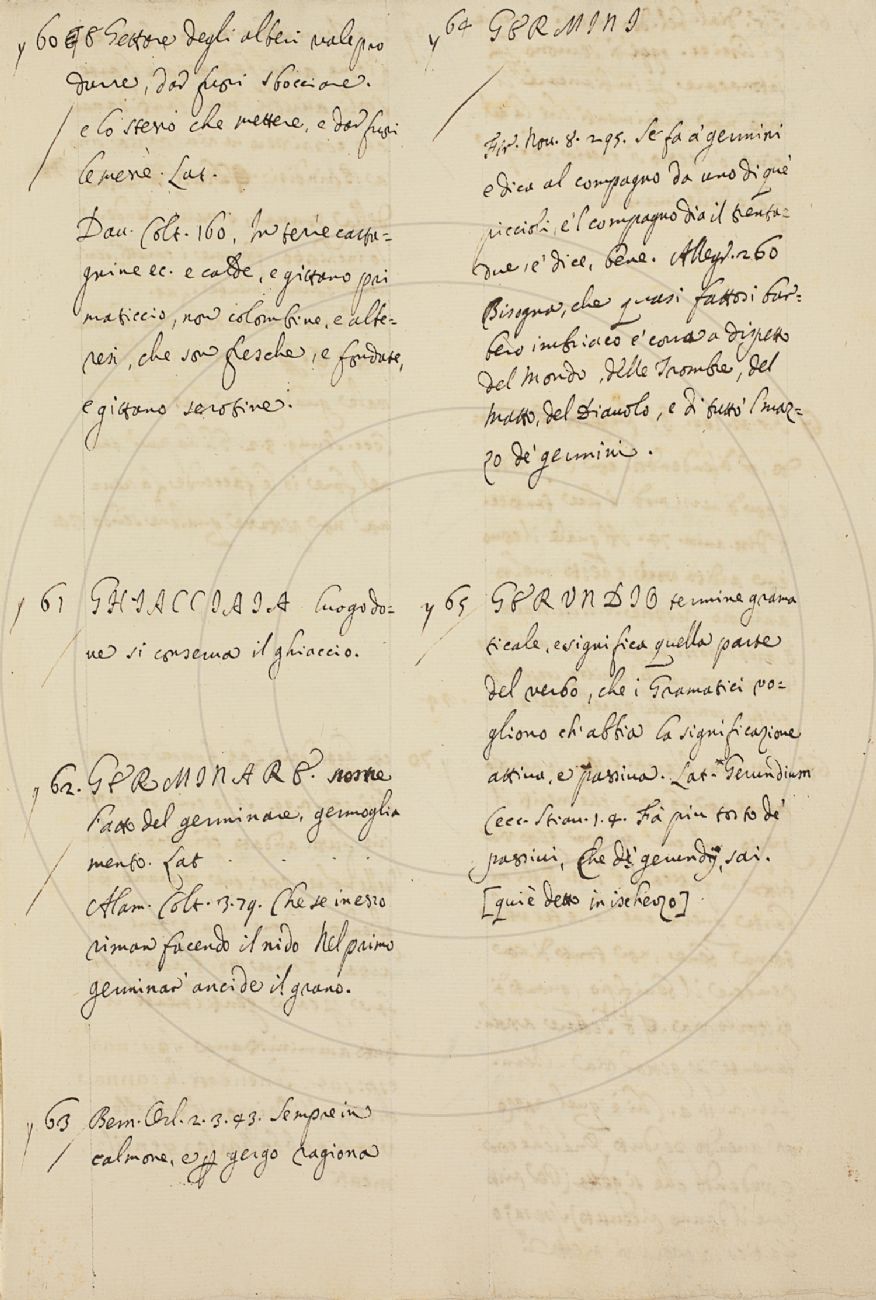 y 60 E Gettare degli alberi vale pro
durre, dar fuori sbocciare.
e lo stesso che mettere, e dar fuori
le messe. Lat.
Dav. Colt. 160. In terre casta=
gnine ec. e calde, e gittano pri
maticcio, non colombine, e albe=
resi, che son fresche, e fondate,
e gittano serotine.
y 61 GHIACCIAIA luogo do=
ve si conserva il ghiaccio.
y 62. GERMINARE. nostre
l'atto del germinare, germoglia
mento. Lat . . . . .
Alam. Colt. 3. 79. Che se in esso
riman facendo il nido Nel primo
germinar ancide il grano.
y 63 Bern. Orl. 2. 3. 43. Sempre in
calmone, e gergo ragiona
y 64 GERMINI
Fir. Nov. 8. 295. Se fa a' germini
e dica al compagno da uno di que'
piccioli, e 'l compagno dia il trenta=
due, e' dice, bene. Allegr. 260
Bisogna, che quasi fattosi bar=
bero imbriaco e' corra a dispetto
del Mondo, delle Trombe, del
Matto, del Diavolo, e di tutto 'l maz=
zo de' germini.
y 65 GERUNDIO termine grama
ticale, e significa quella parte
del verbo, che i Gramatici vo=
gliono ch' abbia la significazione
attiva, e passiva. Lat. Gerundium
Cecc. Stiav. 1. 4. Fà piu tosto de'
passivi, Che de' gerundj, sai.
[qui è detto in ischerzo]